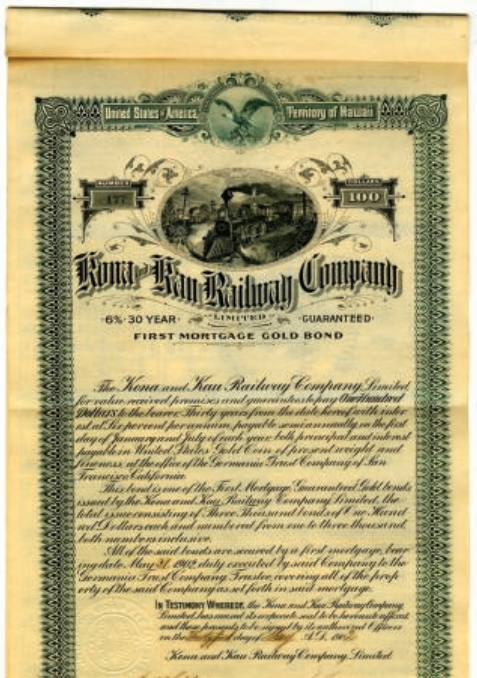 United States of America. Territory of Hawaii
NUMBER
177
DOLLARS
100
Kona and Kau Railway Company
LIMITED
6% 30 YEAR GUARANTEED
FIRST MORTGAGE GOLD BOND
The Kona and Kau Railway Company, Limited
for value received promises and guarantees to pay One Hundred
Dollars to the bearer Thirty years from the date hereof with inter
est at Six percent per annum, payable semi annually on the first
day of January and July of each year, both principal and interest
payable in United States Gold Coin of present weight and
fineness, at the office of the Germania Trust Company of San
Francisco California.
This bond is one of the First Mortgage Guaranteed Gold bonds
issued by the Kona and Kau Railway Company Limited, the
total issue consisting of Three Thousand bonds of One Hund
red Dollars each and numbered from one to three thousand
both numbers inclusive.
All of the said bonds are secured by a first mortgage, bear
ing date, May 31, 1902, duly executed by said Company to the
Germania Trust Company, Trustee, covering all of the prop
erty of the said Company as set forth in said mortgage.
IN TESTIMONY WHEREOF, the Kona and Kau Railway Company
Limited, has caused its corporate seal to be hereunto affixed
and these presents to be signed by its authorized Officers
in the day of A.D. 1902
Kona and Kau Railway Company, Limited